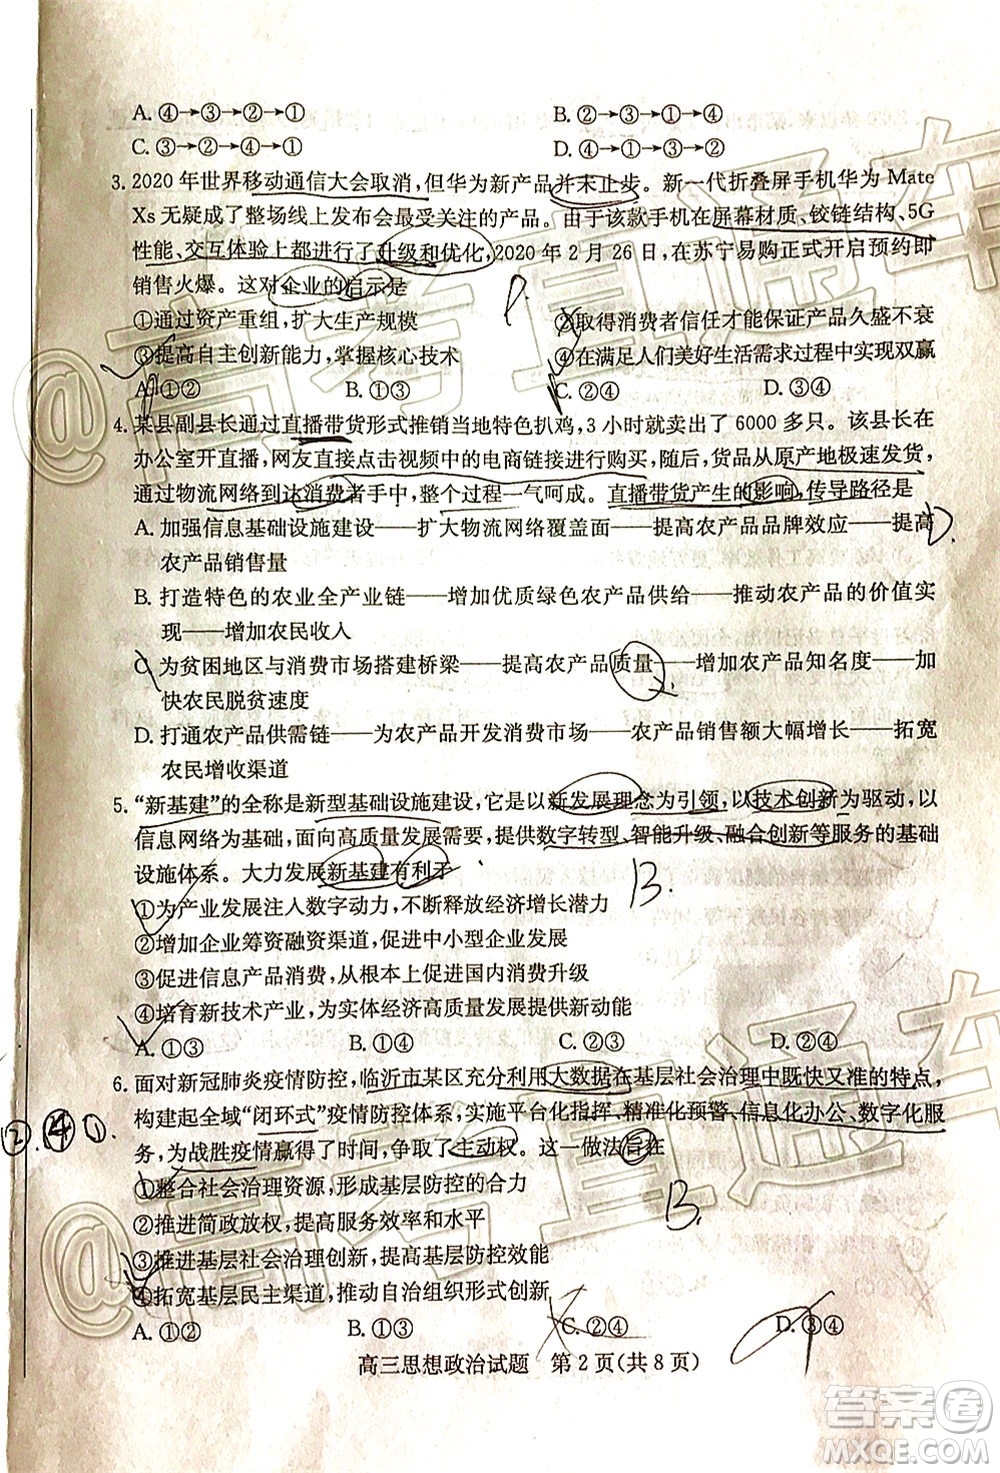 A. ④→③→②→①
B. ②→③→①→④
C. ③→②→④→①
D. ④→①→②→③
3. 2020 年世界移动通信大会取消,但华为新产品并未止步。新一代折叠屏手机华为 Mate
Xs 无疑成了整场线上发布会最受关注的产品。由于该款手机在屏幕材质、铰链结构、5G
性能、交互体验上都进行了升级和优化,2020 年 2 月 26 日,在苏宁易购正式开启预约即
销售火爆。这对企业的启示是
①通过资产重组,扩大生产规模
②取得消费者信任才能保证产品久盛不衰
③提高自主创新能力,掌握核心技术
④在满足人们美好生活需求过程中实现双赢
A. ①②
B. ①③
C. ②④
D. ③④
4. 某县副县长通过直播带货形式推销当地特色扒鸡,3 小时就卖出了 6000 多只。该县长在
办公室开直播,网友直接点击视频中的电商链接进行购买,随后,货品从原产地极速发货,
通过物流网络到达消费者手中,整个过程一气呵成。直播带货产生的影响,传导路径是
A. 加强信息基础设施建设——扩大物流网络覆盖面——提高农产品品牌效应——提高
农产品销售量
B. 打造特色的农业全产业链——增加优质绿色农产品供给——推动农产品的价值实
现——增加农民收入
C. 为贫困地区与消费市场搭建桥梁——提高农产品质量——增加农产品知名度——加
快农民脱贫速度
D. 打通农产品供需链——为农产品开发消费市场——农产品销售额大幅增长——拓宽
农民增收渠道
5. “新基建”的全称是新型基础设施建设,它是以新发展理念为引领,以技术创新为驱动,以
信息网络为基础,面向高质量发展需要,提供数字转型、智能升级、融合创新等服务的基础
设施体系。大力发展新基建有利于
①为产业发展注入数字动力,不断释放经济增长潜力
②增加企业筹资融资渠道,促进中小型企业发展
③促进信息产品消费,从根本上促进国内消费升级
④培育新技术产业,为实体经济高质量发展提供新动能
A. ①③
B. ①④
C. ②③
D. ②④
6. 面对新冠肺炎疫情防控,临沂市某区充分利用大数据在基层社会治理中既快又准的特点,
构建起全域“闭环式”疫情防控体系,实施平台化指挥、精准化预警、信息化办公、数字化服
务,为战胜疫情赢得了时间,争取了主动权。这一做法旨在
①整合社会治理资源,形成基层防控的合力
②推进简政放权,提高服务效率和水平
③推进基层社会治理创新,提高基层防控效能
④拓宽基层民主渠道,推动自治组织形式创新
A. ①②
B. ①③
C. ②④
D. ③④
高三思想政治试题 第 2 页(共 8 页)
D.
B.
②.④①
B.
@高考直通车
@高考直通车
答案圈
MXQE.COM